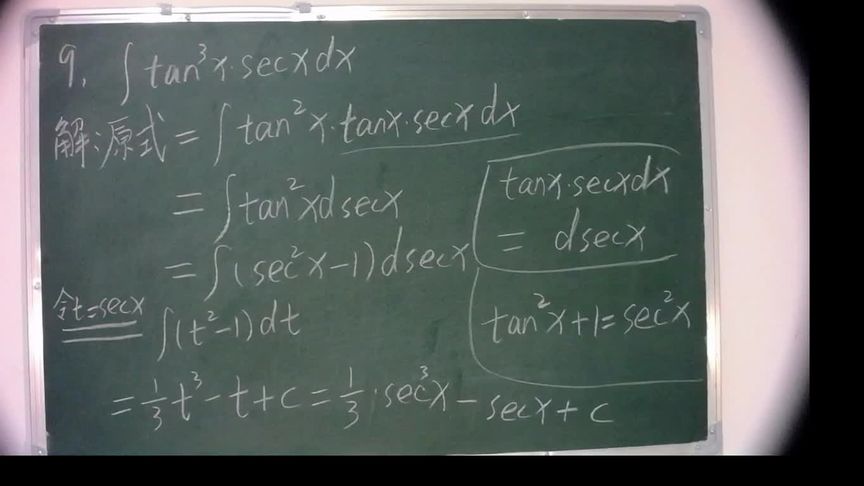 9. ∫ tan³x·secxdx
解:原式 = ∫ tan²x·tanx·secxdx
= ∫ tan²xdsecx
= ∫(sec²x-1)dsecx
令t=secx ∫(t²-1)dt
= 1/3 t³ - t + c = 1/3·sec³x - secx + c
tanx·secxdx
= dsecx
tan²x+1=sec²x